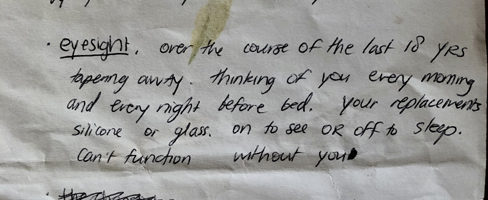 · eyesight, over the course of the last 18 yrs
tapering away. thinking of you every morning
and every night before bed. your replacements
silicone or glass. on to see OR off to sleep.
Can't function without you